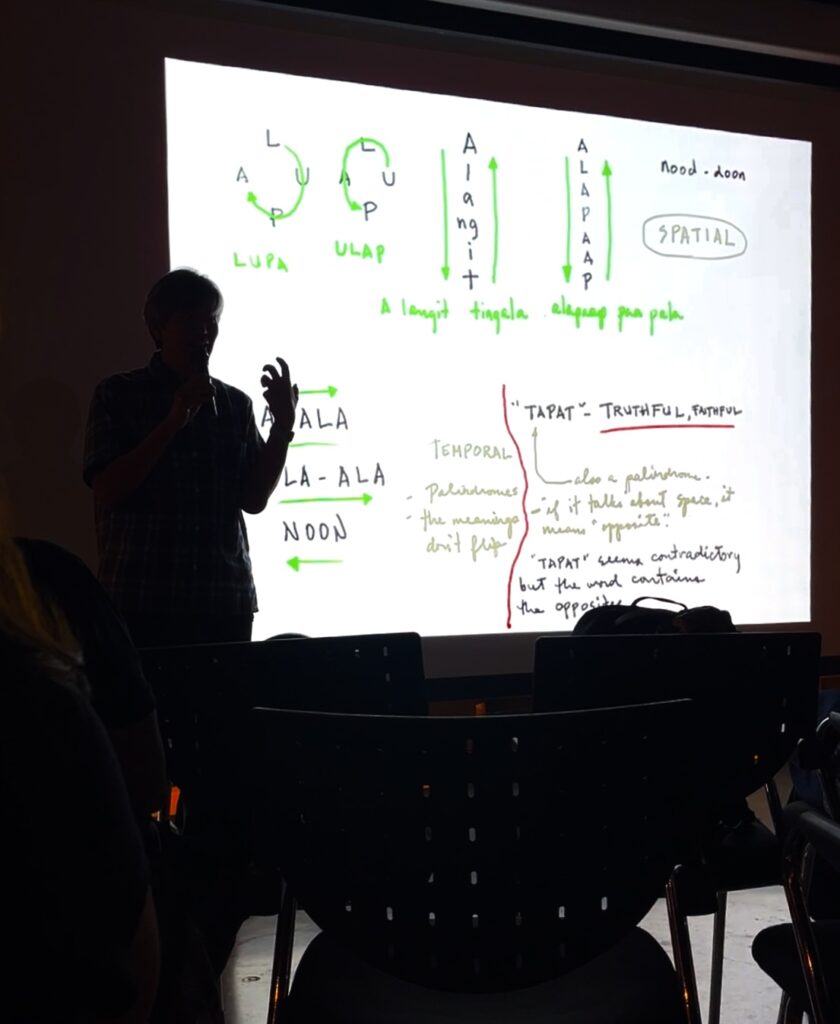 L
A U
P
LUPA
L
A U
P
ULAP
A
l
a
ng
i
t
A
L
A
P
A
A
P
A langit tingala alapaap paa pala
nood - doon
SPATIAL
ALA
LA - ALA
NOON
TEMPORAL
- Palindromes
- the meanings
don't flip
"TAPAT" - TRUTHFUL, FAITHFUL
also a palindrome.
- "if it talks about space, it
means "opposite".
"TAPAT" seems contradictory
but the word contains
the opposites